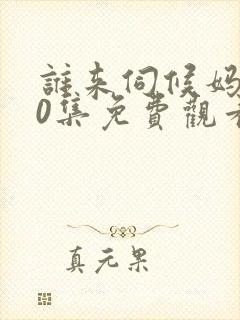 誰来伺候妈
0集免費觀看
真元果